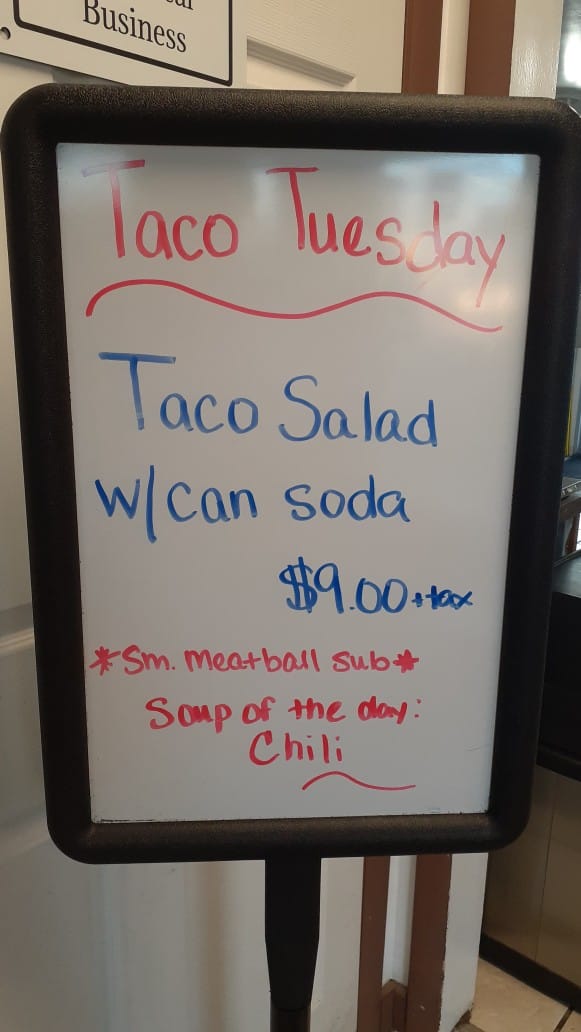 Business
Taco Tuesday
Taco Salad
w/can soda
$9.00+tax
*Sm. Meatball sub*
Soup of the day:
Chili